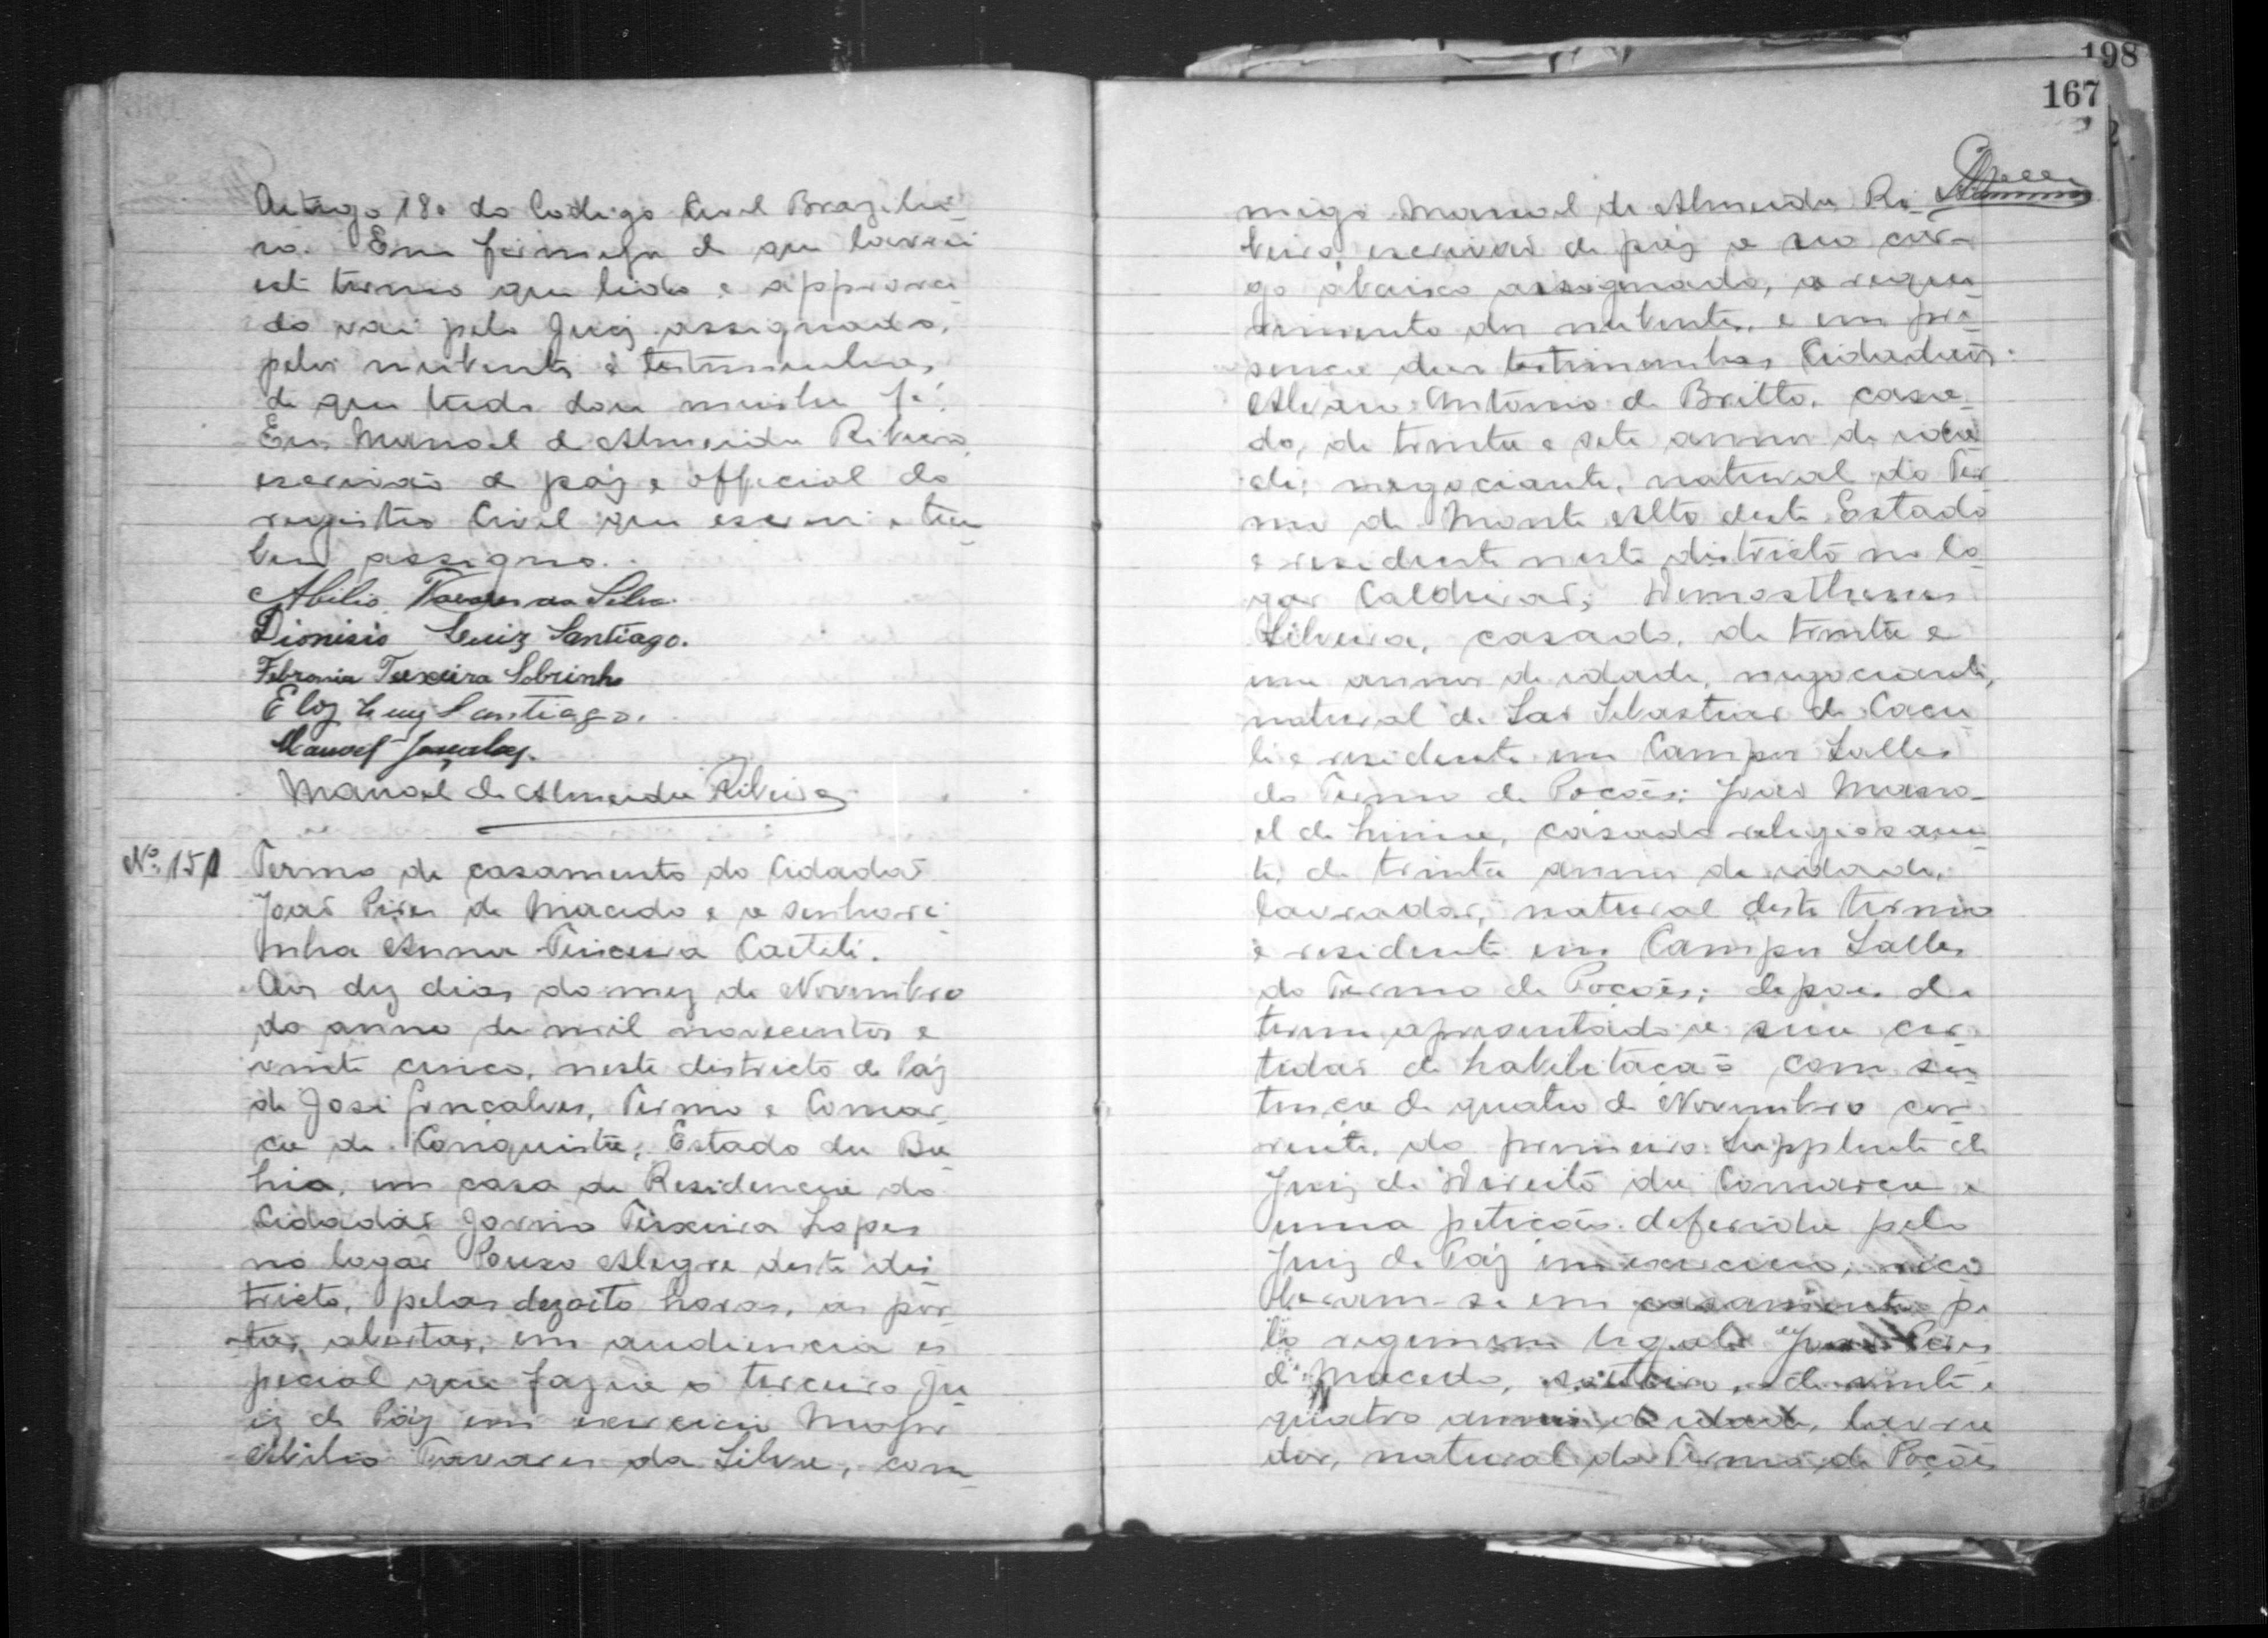 Artigo 180 do Codigo Civil Brazilei-
ro. Em firmeza de que lavrei
este termo que lido e approva-
do vai pelo Juiz assignado,
pelos nubentes e testimunhas,
de que tudo dou minha fé.
Eu Manoel de Almeida Ribeiro,
escrivão de páz e official do
registro Civil que escrevi e tam-
bem assigno.
Abilio Tavares da Silva.
Dionisio Luiz Santiago.
Febronia Teixeira Sobrinho
Eloy Luiz Santiago.
Manoel Gonçalves.
Manoel de Almeida Ribeiro
Nº 151
Termo de casamento do Cidadão
João Pires de Macedo e a senhori-
nha Anna Teixeira Caetete.
Aos dez dias do mez de Novembro
do anno de mil novecentos e
vinte cinco, neste districto de Páz
de José Gonçalves, Termo e Comar-
ca de Conquista, Estado da Ba-
hia, em casa de Residencia do
Cidadão Jovino Teixeira Lopes
no logar Pouso Alegre deste dis-
tricto, pelas dezoito horas, as por-
tas abertas, em audiencia es-
pecial que fazia o terceiro Ju-
iz de Páz em exercicio Major
Abilio Tavares da Silva, com-
198
167
migo Manoel de Almeida Ri-
beiro, escrivão de páz a seo car-
go abaixo assignado, a reque-
rimento dos nubentes, e em pre-
sença das testimunhas Cidadãos
Alvaro Antonio de Britto, casa-
do, de trinta e sete annos de ida-
de, negociante, natural do Ter-
mo de Monte Alto deste Estado
e residente neste districto no lo-
gar Caldeirão; Demosthenes
Silveira, casado, de trinta e
um annos de idade, negociante,
natural de São Sebastião de Cacu-
lé e residente em Campos Salles
do Termo de Poções; João Mano-
el de Lima, casado religiosamen-
te, de trinta annos de idade,
lavrador, natural deste termo
e residente em Campos Salles
do Termo de Poções; depois de
terem apresentado a sua cer-
tidão de habilitação com sen-
tença de quatro de Novembro cor-
rente, do primeiro Supplente de
Juiz de Direito da Comarca e
uma petição deferida pelo
Juiz de Páz em exercicio, rece-
beram-se em casamento pe-
lo regimem legal João Pires
de Macedo, solteiro, de vinte e
quatro annos de idade, lavra-
dor, natural do Termo de Poções